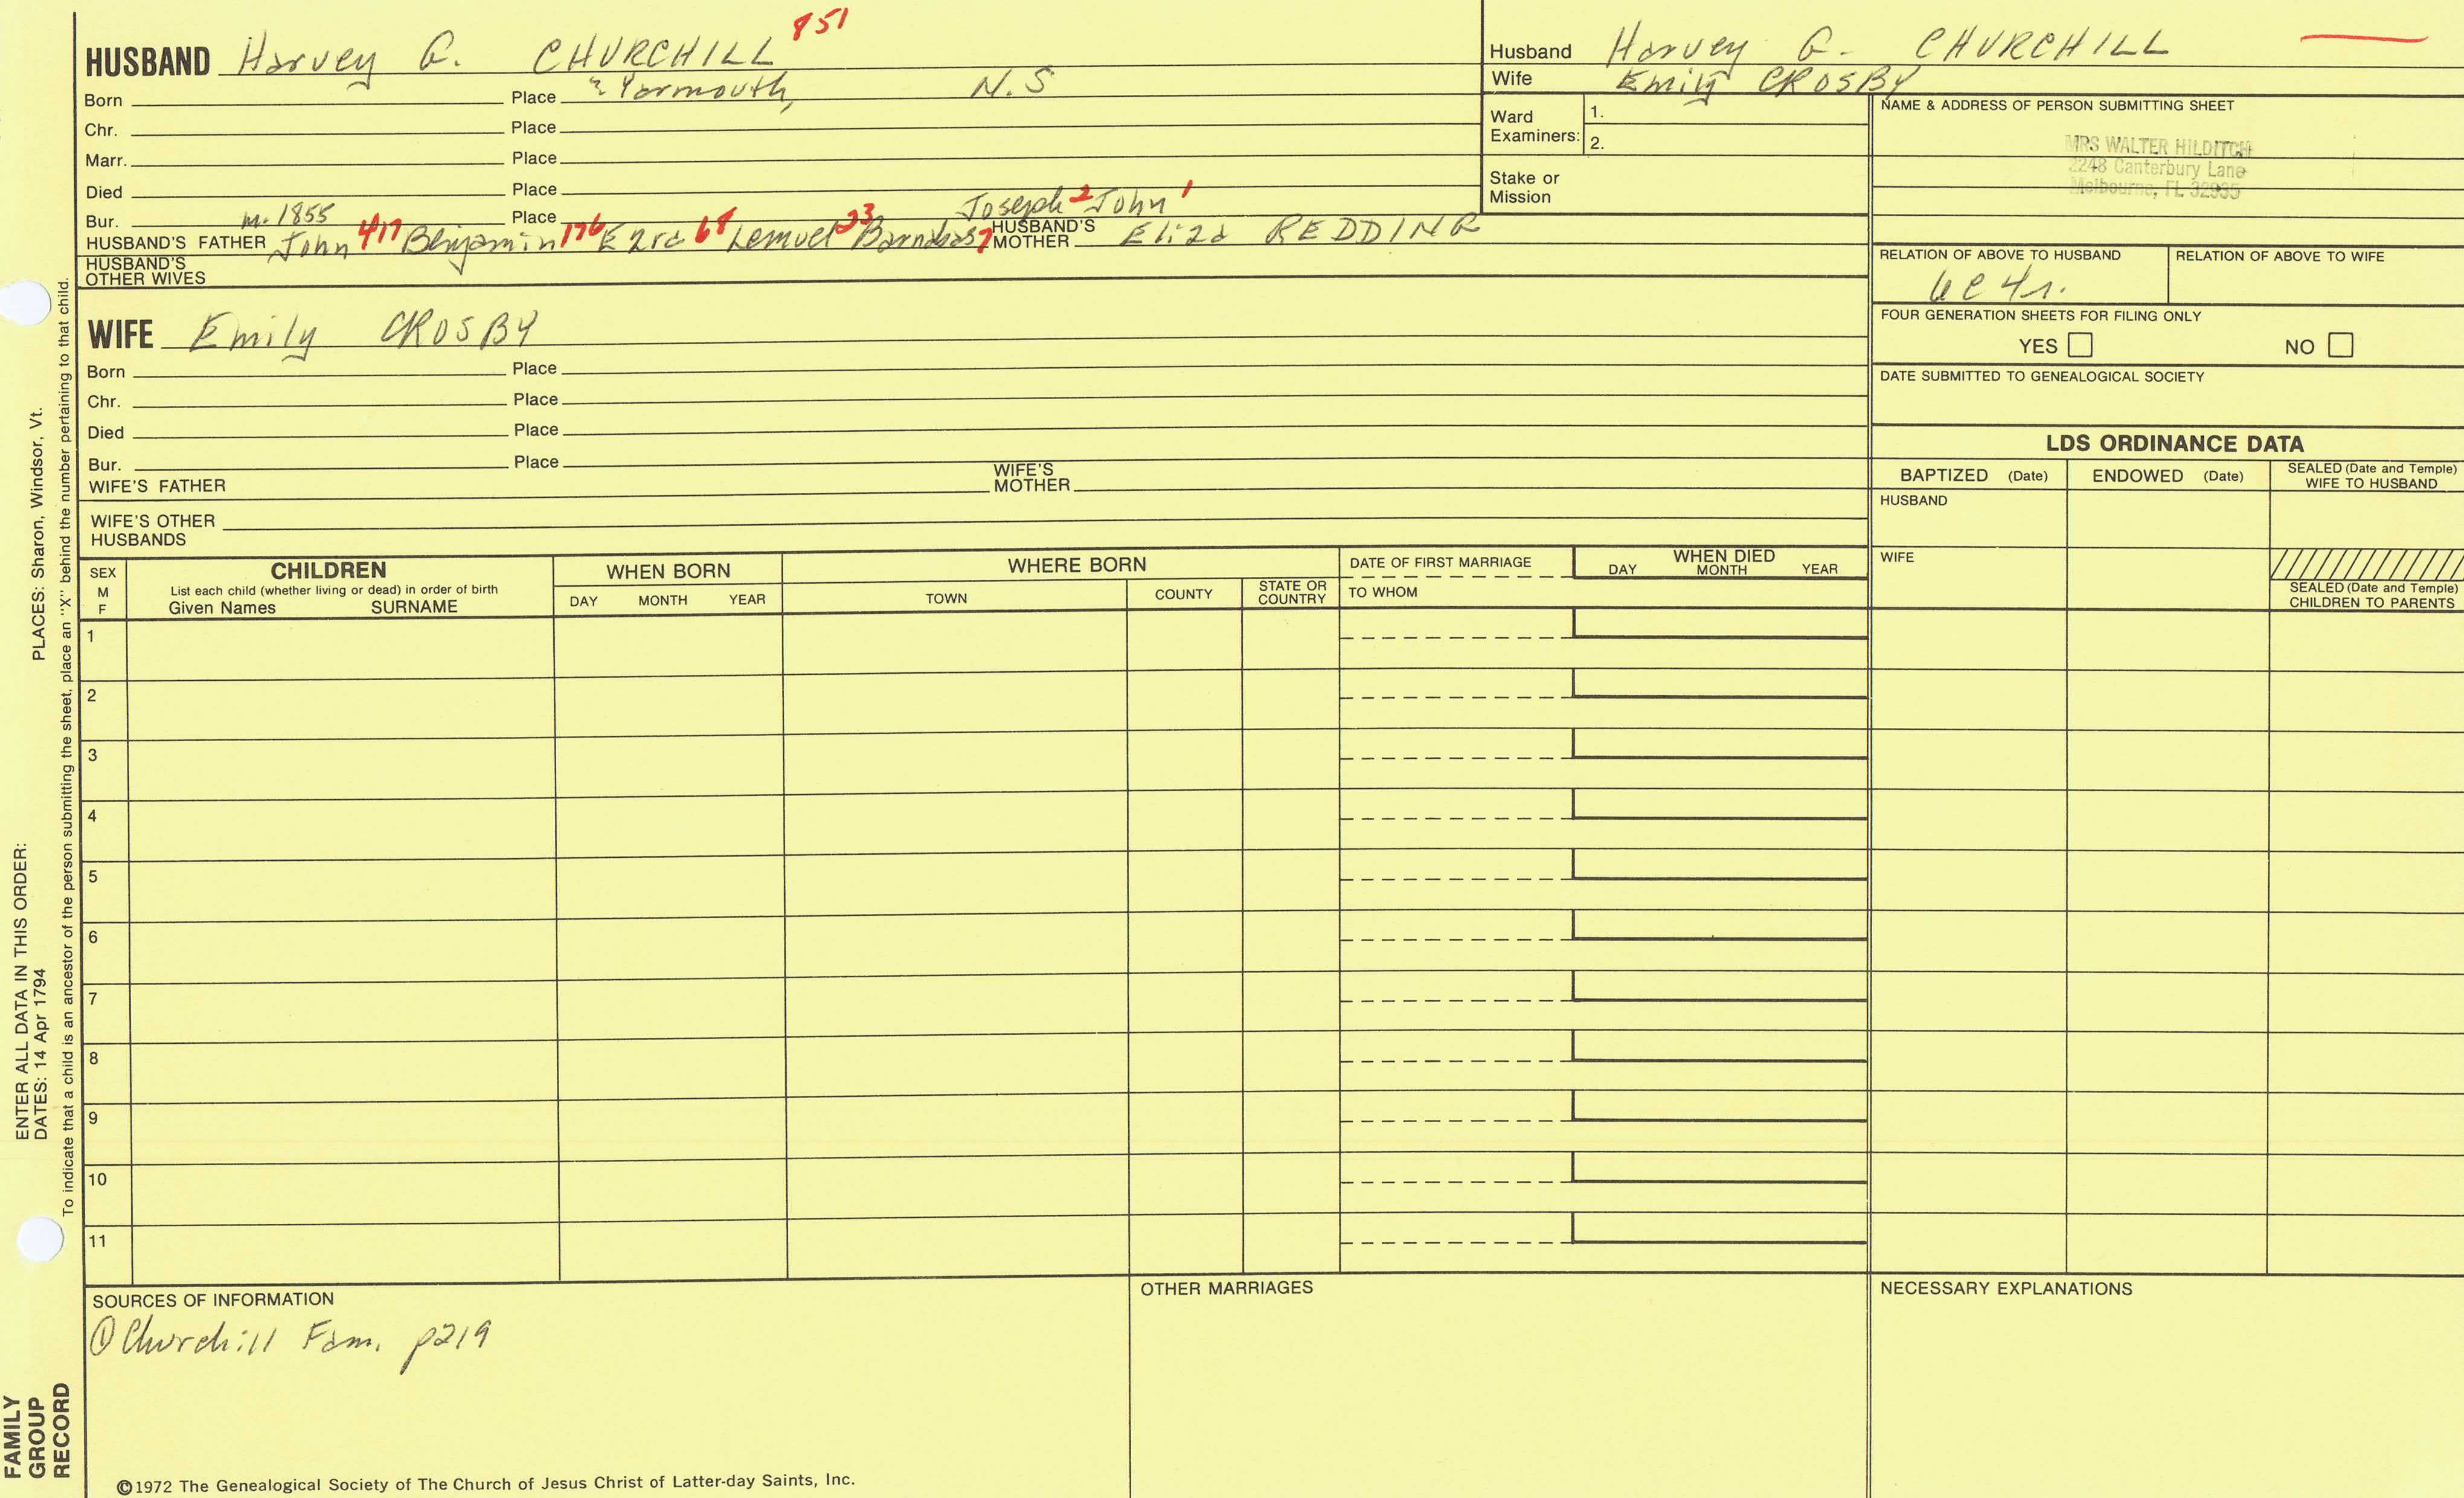 HUSBAND Harvey G. CHURCHILL 851
Born Place ? Yarmouth, N.S
Chr. Place
Marr. Place
Died Place
Bur. Place
m. 1855 Joseph 2 John 1
HUSBAND'S FATHER John 417 Benjamin 176 Ezra 68 Lemuel 23 Barnabas 7 HUSBAND'S MOTHER Eliza REDDING
HUSBAND'S OTHER WIVES
WIFE Emily CROSBY
Born Place
Chr. Place
Died Place
Bur. Place
WIFE'S FATHER WIFE'S MOTHER
WIFE'S OTHER HUSBANDS
Husband Harvey G. CHURCHILL
Wife Emily CROSBY
Ward Examiners: 1.
2.
Stake or Mission
NAME & ADDRESS OF PERSON SUBMITTING SHEET
MRS WALTER HILDITCH
2248 Canterbury Lane
Melbourne, FL 32935
RELATION OF ABOVE TO HUSBAND RELATION OF ABOVE TO WIFE
6C 4r.
FOUR GENERATION SHEETS FOR FILING ONLY
YES NO
DATE SUBMITTED TO GENEALOGICAL SOCIETY
LDS ORDINANCE DATA
BAPTIZED (Date) ENDOWED (Date) SEALED (Date and Temple) WIFE TO HUSBAND
HUSBAND
WIFE
SEALED (Date and Temple) CHILDREN TO PARENTS
SEX M F
CHILDREN
List each child (whether living or dead) in order of birth
Given Names SURNAME
WHEN BORN
DAY MONTH YEAR
WHERE BORN
TOWN COUNTY STATE OR COUNTRY
DATE OF FIRST MARRIAGE
TO WHOM
WHEN DIED
DAY MONTH YEAR
1
2
3
4
5
6
7
8
9
10
11
SOURCES OF INFORMATION
① Churchill Fam. p219
OTHER MARRIAGES
NECESSARY EXPLANATIONS
©1972 The Genealogical Society of The Church of Jesus Christ of Latter-day Saints, Inc.
FAMILY GROUP RECORD
ENTER ALL DATA IN THIS ORDER:
DATES: 14 Apr 1794 PLACES: Sharon, Windsor, Vt.
To indicate that a child is an ancestor of the person submitting the sheet, place an "X" behind the number pertaining to that child.